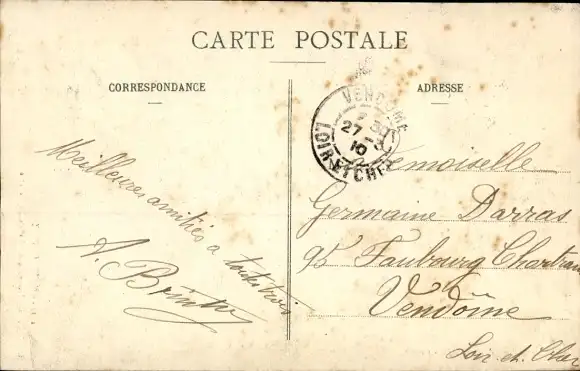 CARTE POSTALE
CORRESPONDANCE
ADRESSE
VENDOME
27-3
10
LOIR-ET-CHER
Meilleures amitiés a toutes trois
A.
Mademoiselle
Germaine Darras
95 Faubourg Chartrain
Vendôme
Loir et Cher